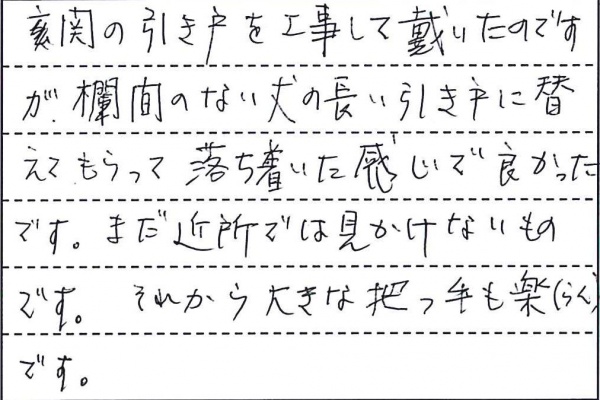 玄関の引き戸を工事して戴いたのです
が、欄間のない丈の長い引き戸に替
えてもらって落ち着いた感じで良かった
です。まだ近所では見かけないもの
です。それから大きな把っ手も楽(らく)
です。